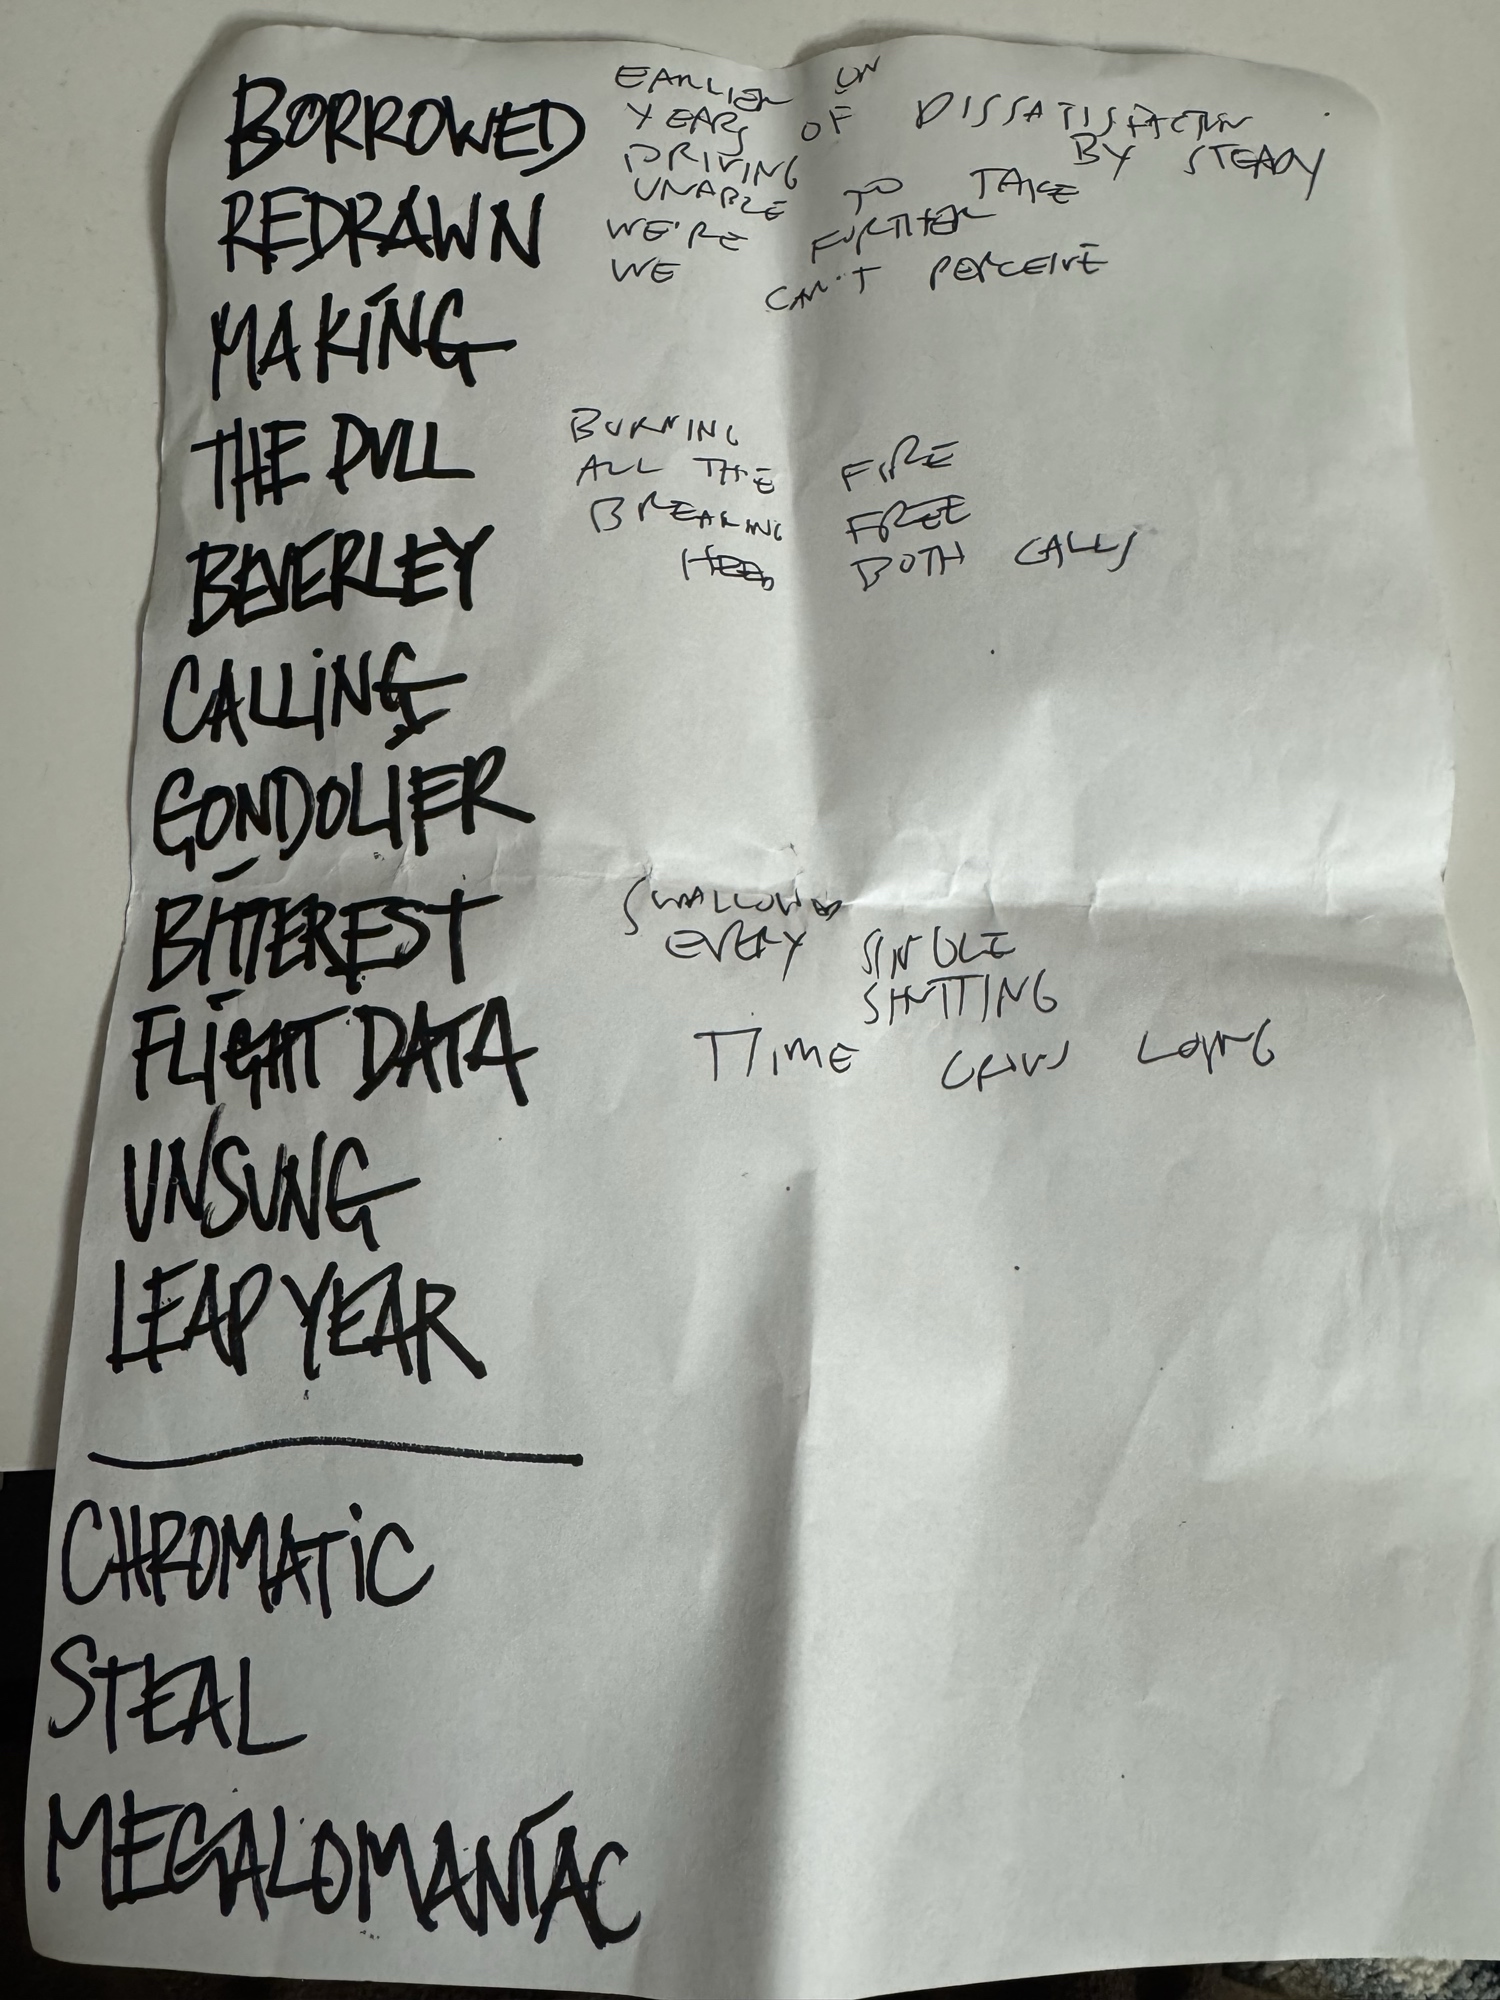 BORROWED
EARLIER ON
YEARS OF DISSATISFACTION
DRIVING BY STEADY
UNABLE TO TAKE
REDRAWN
WE'RE FURTHER
WE CAN'T PERCEIVE
MAKING
THE PULL
BURNING
ALL THE FIRE
BREAKING FREE
BOTH CALLS
BEVERLEY
CALLING
GONDOLIER
BITTEREST
SWALLOW
EVERY SINGLE
SHUTTING
FLIGHT DATA
TIME LONG
UNSUNG
LEAP YEAR
CHROMATIC
STEAL
MEGALOMANIAC